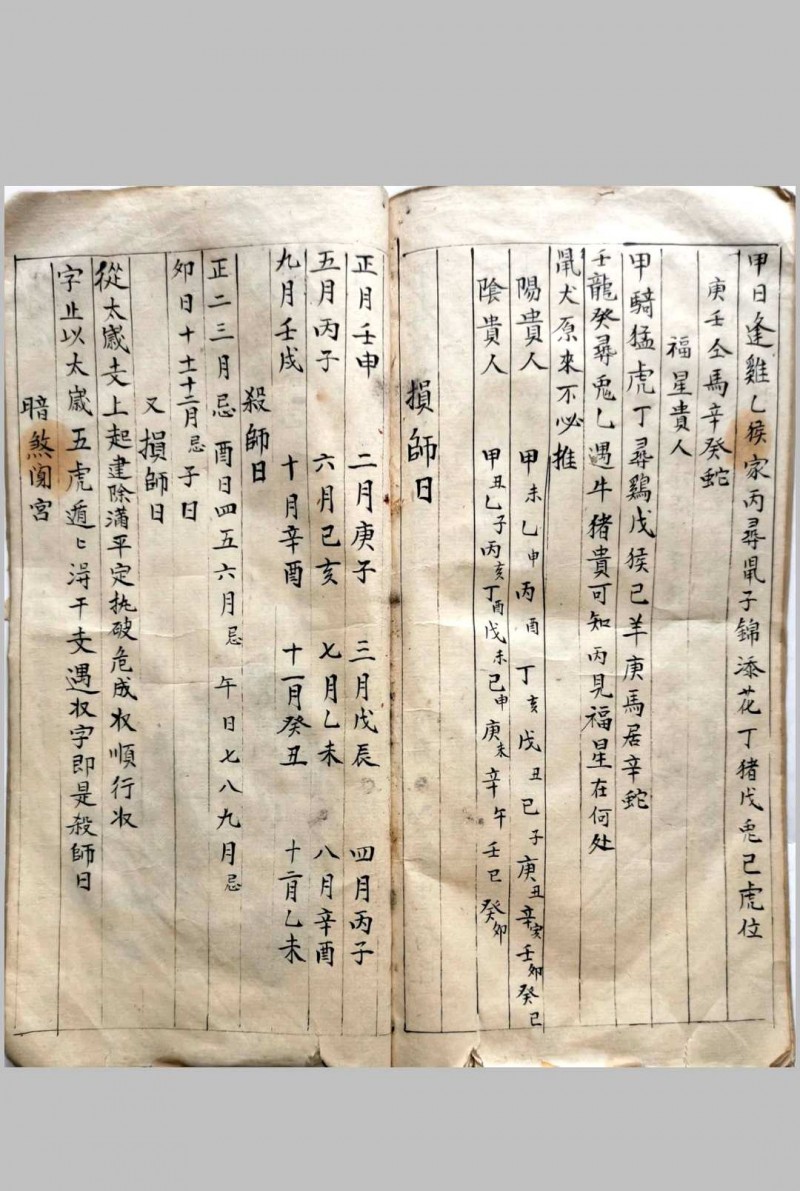 甲日逢雞乙猴家丙尋鼠子錦添花丁猪戊兎己虎位
庚壬仝馬辛癸蛇
福星貴人
甲騎猛虎丁尋鷄戊猴己羊庚馬居辛蛇
壬龍癸尋兎乙遇牛猪貴可知丙見福星在何处
鼠犬原來不必推
陽貴人 甲未乙申丙酉丁亥戊丑己子庚丑辛亥壬卯癸巳
陰貴人 甲丑乙子丙亥丁酉戊未己申庚未辛午壬巳癸卯
損師日
正月壬申 二月庚子 三月戊辰 四月丙子
五月丙子 六月己亥 七月乙未 八月辛酉
九月壬戌 十月辛酉 十一月癸丑 十二月乙未
殺師日
正二三月忌酉日四五六月忌午日七八九月忌
卯日十十一十二月忌子日
又損師日
從太歲支上起建除滿平定执破危成收順行收
字止以太歲五虎遁匕淂干支遇收字即是殺師日
暗煞闖宮